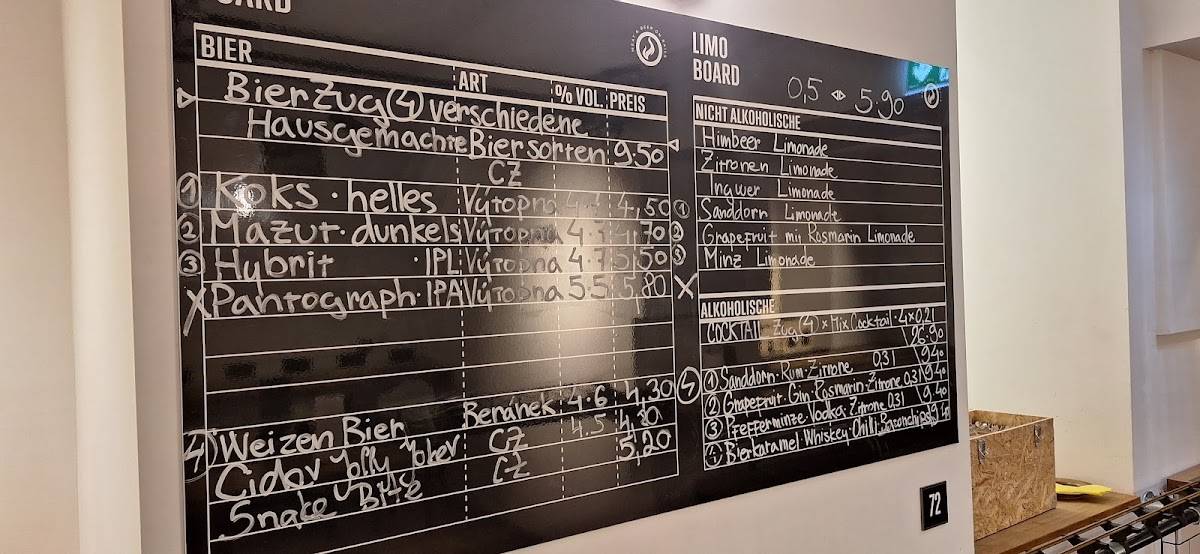 BOARD
BIER ART % VOL. PREIS
BierZug(4) verschiedene
Hausgemachte Biersorten 9.50
CZ
1 Koks · helles Výtopna 4,50 1
2 Mazut · dunkels Výtopna 4,70 2
3 Hybrit · IPL Výtopna 4.7 5,50 3
X Pantograph · IPA Výtopna 5.5 5,80 X
4) Weizen Bier Benánek 4.6 4,30
Cidor Jolly Joker CZ 4.5 4,20
Snake Bite CZ 5,20
LIMO
BOARD
0,5 5.90
NICHT ALKOHOLISCHE
Himbeer Limonade
Zitronen Limonade
Ingwer Limonade
Sanddorn Limonade
Grapefruit mit Rosmarin Limonade
Minz Limonade
ALKOHOLISCHE
COCKTAIL Zug(4) x Mix Cocktail · 4x0,2l
26.90
1 Sanddorn · Rum · Zitrone 0,3l 9.40
2 Grapefruit · Gin · Rosmarin · Zitrone 0,3l 9.40
3 Pfefferminze · Vodka Zitrone 0,3l 9.40
Bierkaramel · Whiskey · Chilli 9.40
72